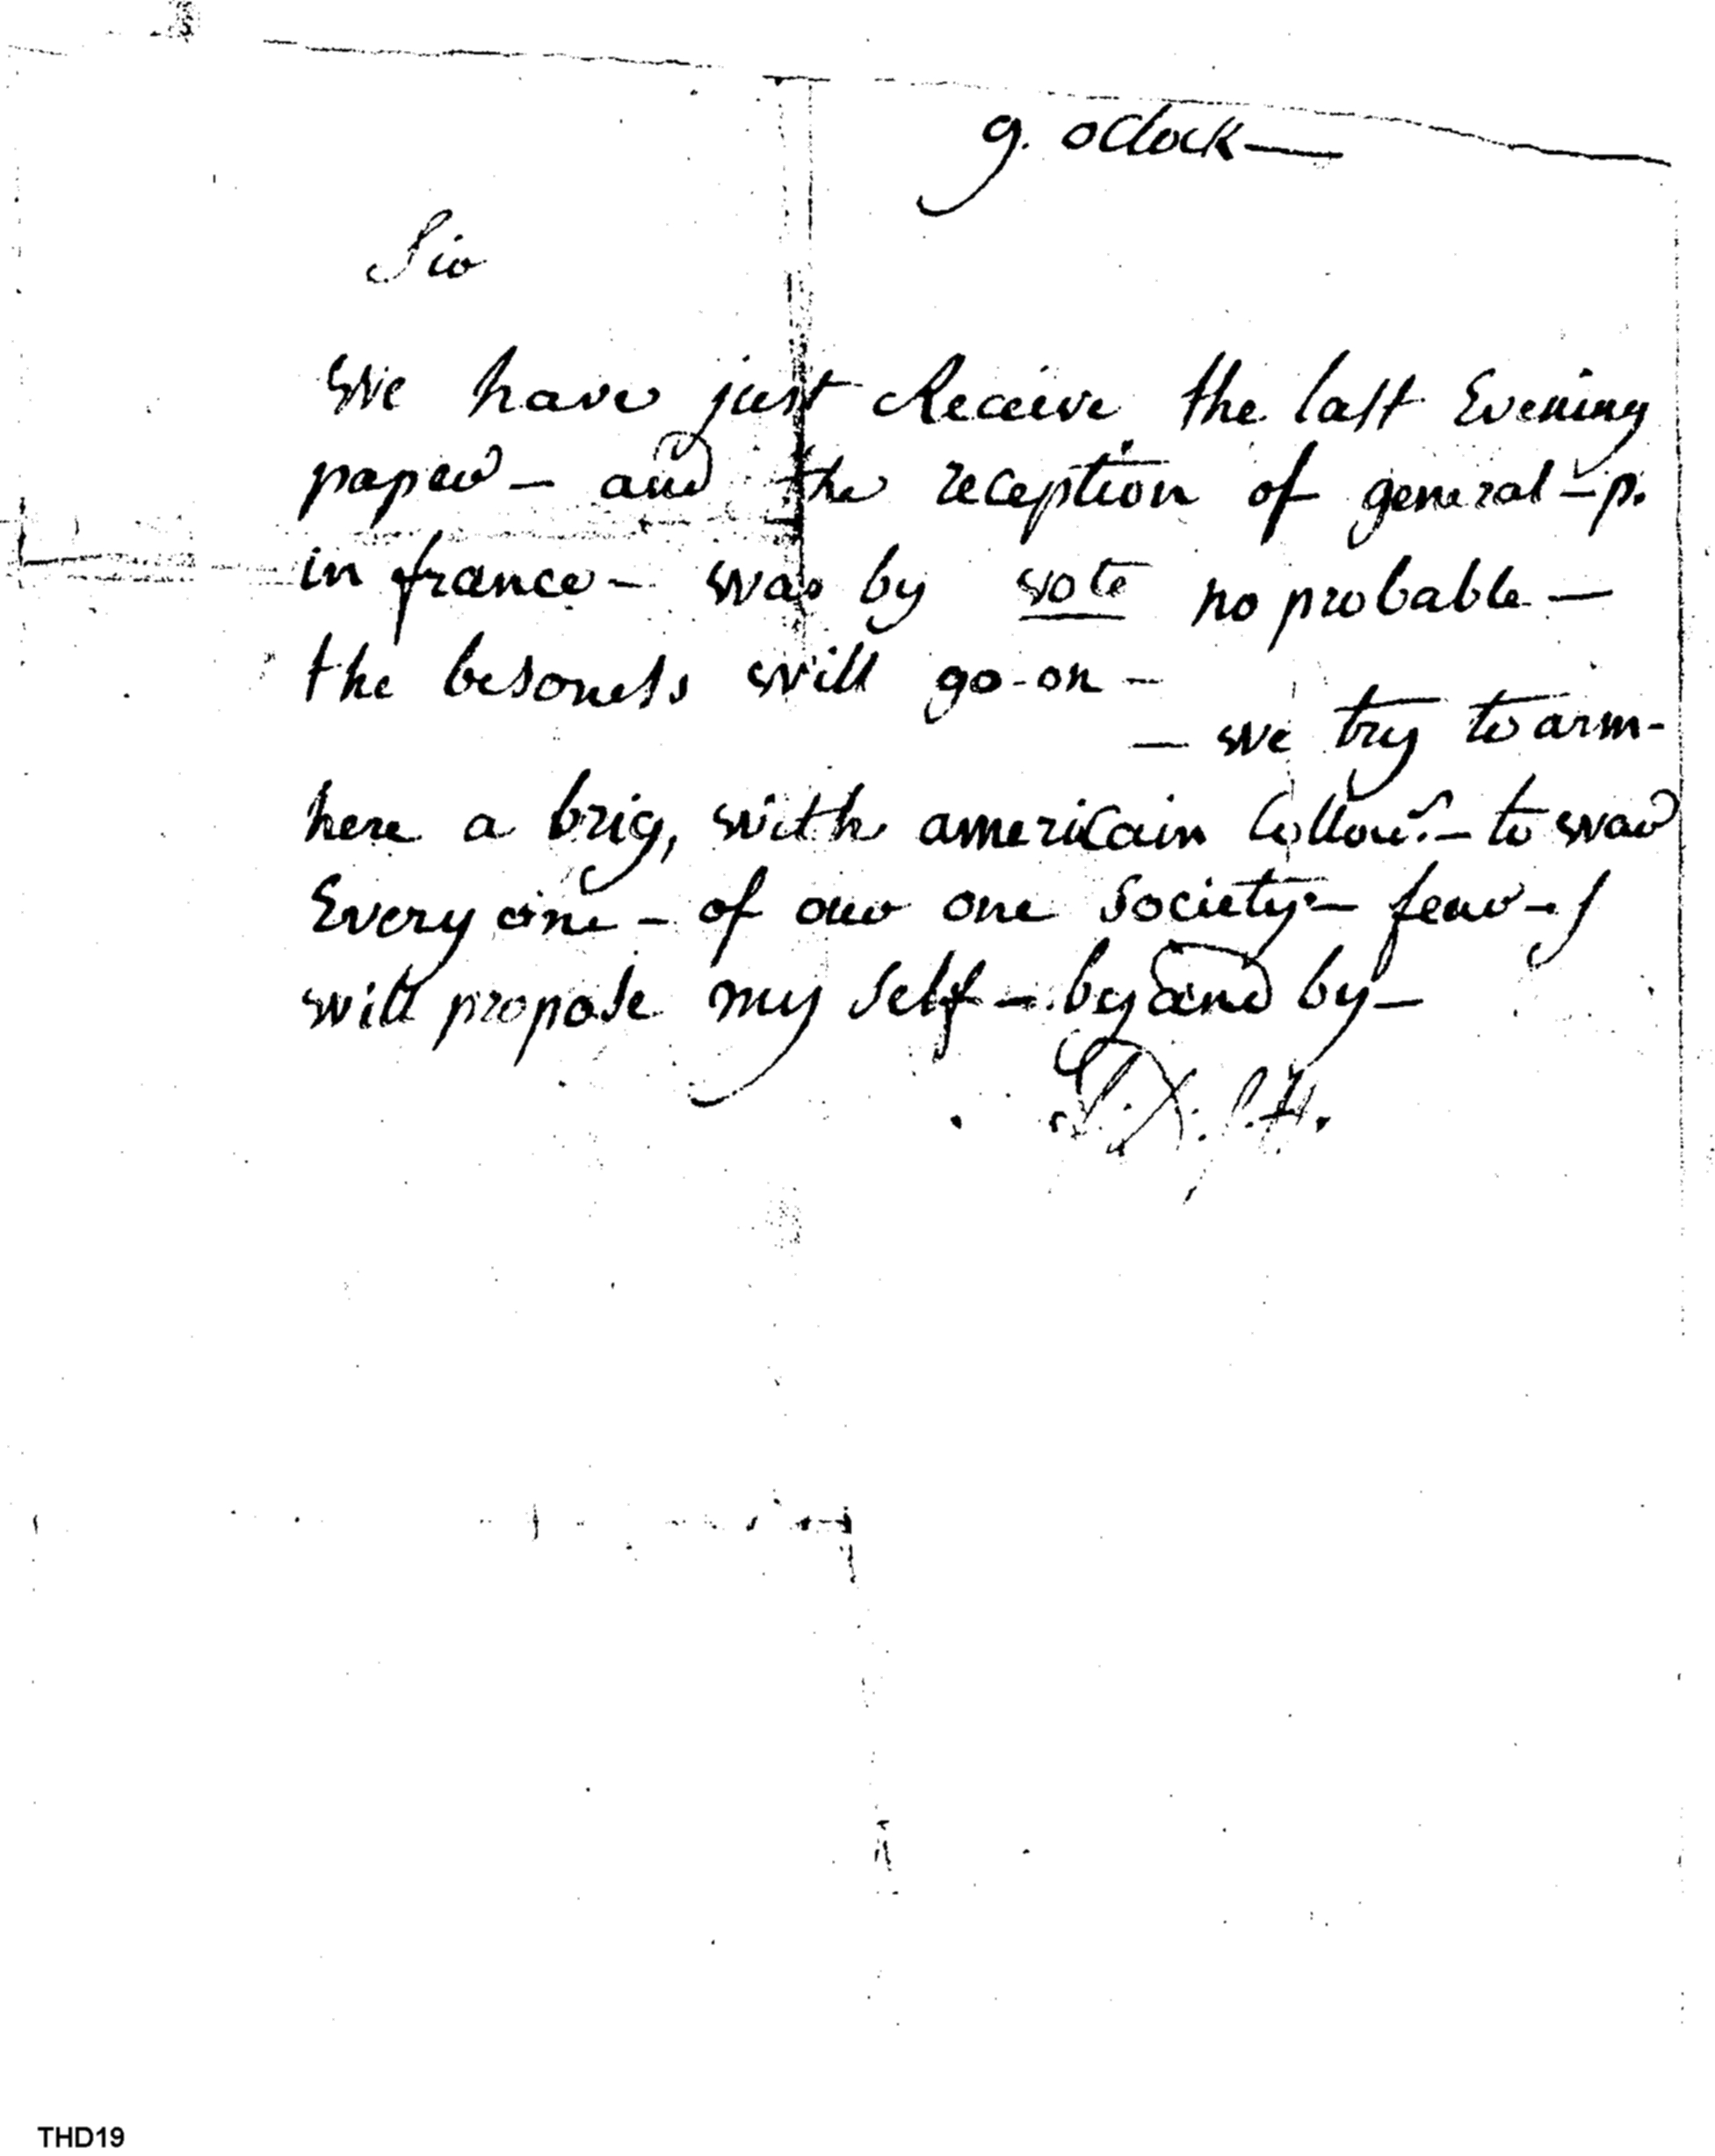 9. oClock —
Sir
We have just Receive the last Evening
paper — and the reception of general — p.
in france — was by vote no probable —
the besoness will go-on —
— we try to arm-
here a brig, with americain Collour. — to war
Every one — of our one society. — fear — I
will propose my self — by and by —
THD19